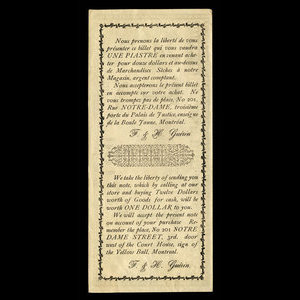 Nous prenons la liberté de vous
présenter ce billet qui vous vaudra
UNE PIASTRE en venant ache-
ter pour douze dollars et au-dessus
de Marchandises Sèches à notre
Magasin, argent comptant.
Nous accepterons le présent billet
en accompte sur votre achat. Ne
vous trompez pas de place, No 201,
Rue NOTRE-DAME, troisième
porte du Palais de Justice, enseigne
de la Boule Jaune, Montréal.
F. & H. Guérin.
We take the liberty of sending you
this note, which by calling at our
store and buying Twelve Dollars
worth of Goods for cash, will be
worth ONE DOLLAR to you.
We will accept the present note
on account of your purchase Re-
member the place, No 201 NOTRE
DAME STREET, 3rd. door
west of the Court House, sign of
the Yellow Ball, Montreal.
F. & H. Guérin.